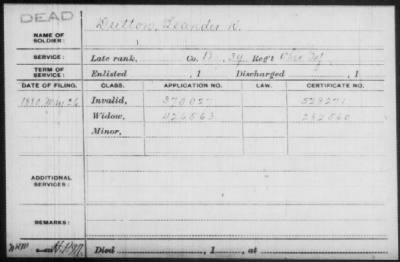 DEAD
NAME OF SOLDIER: Dutton, Leander K.
SERVICE: Late rank, Co. B, 39 Reg't Ohio Inf
TERM OF SERVICE: Enlisted , 1 Discharged , 1
DATE OF FILING. CLASS. APPLICATION NO. LAW. CERTIFICATE NO.
1880 May Invalid, 370027
Widow, 426563 282560
Minor,
ADDITIONAL SERVICES:
REMARKS:
Died , 1 , at